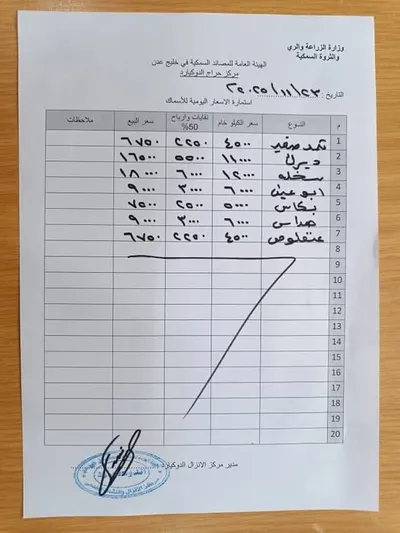 وزارة الزراعة والري
والثروة السمكية
الهيئة العامة للمصائد السمكية في خليج عدن
مركز حراج الدوكيارد
التاريخ: ٢٠٢٥/١١/٢٣
استمارة الاسعار اليومية للأسماك
م النوع سعر الكيلو خام نفايات وارباح 50% سعر البيع ملاحظات
1 ثمد صغير ٤٥٠٠ ٢٢٥٠ ٦٧٥٠
2 ديرك ١١٠٠٠ ٥٥٠٠ ١٦٥٠٠
3 سخله ١٢٠٠٠ ٦٠٠٠ ١٨٠٠٠
4 ابو عين ٦٠٠٠ ٣٠٠٠ ٩٠٠٠
5 بكاس ٥٠٠٠ ٢٥٠٠ ٧٥٠٠
6 هداس ٦٠٠٠ ٣٠٠٠ ٩٠٠٠
7 عنفلوص ٤٥٠٠ ٢٢٥٠ ٦٧٥٠
8
9
10
11
12
13
14
15
16
17
18
19
20
مدير مركز الانزال الدوكيارد